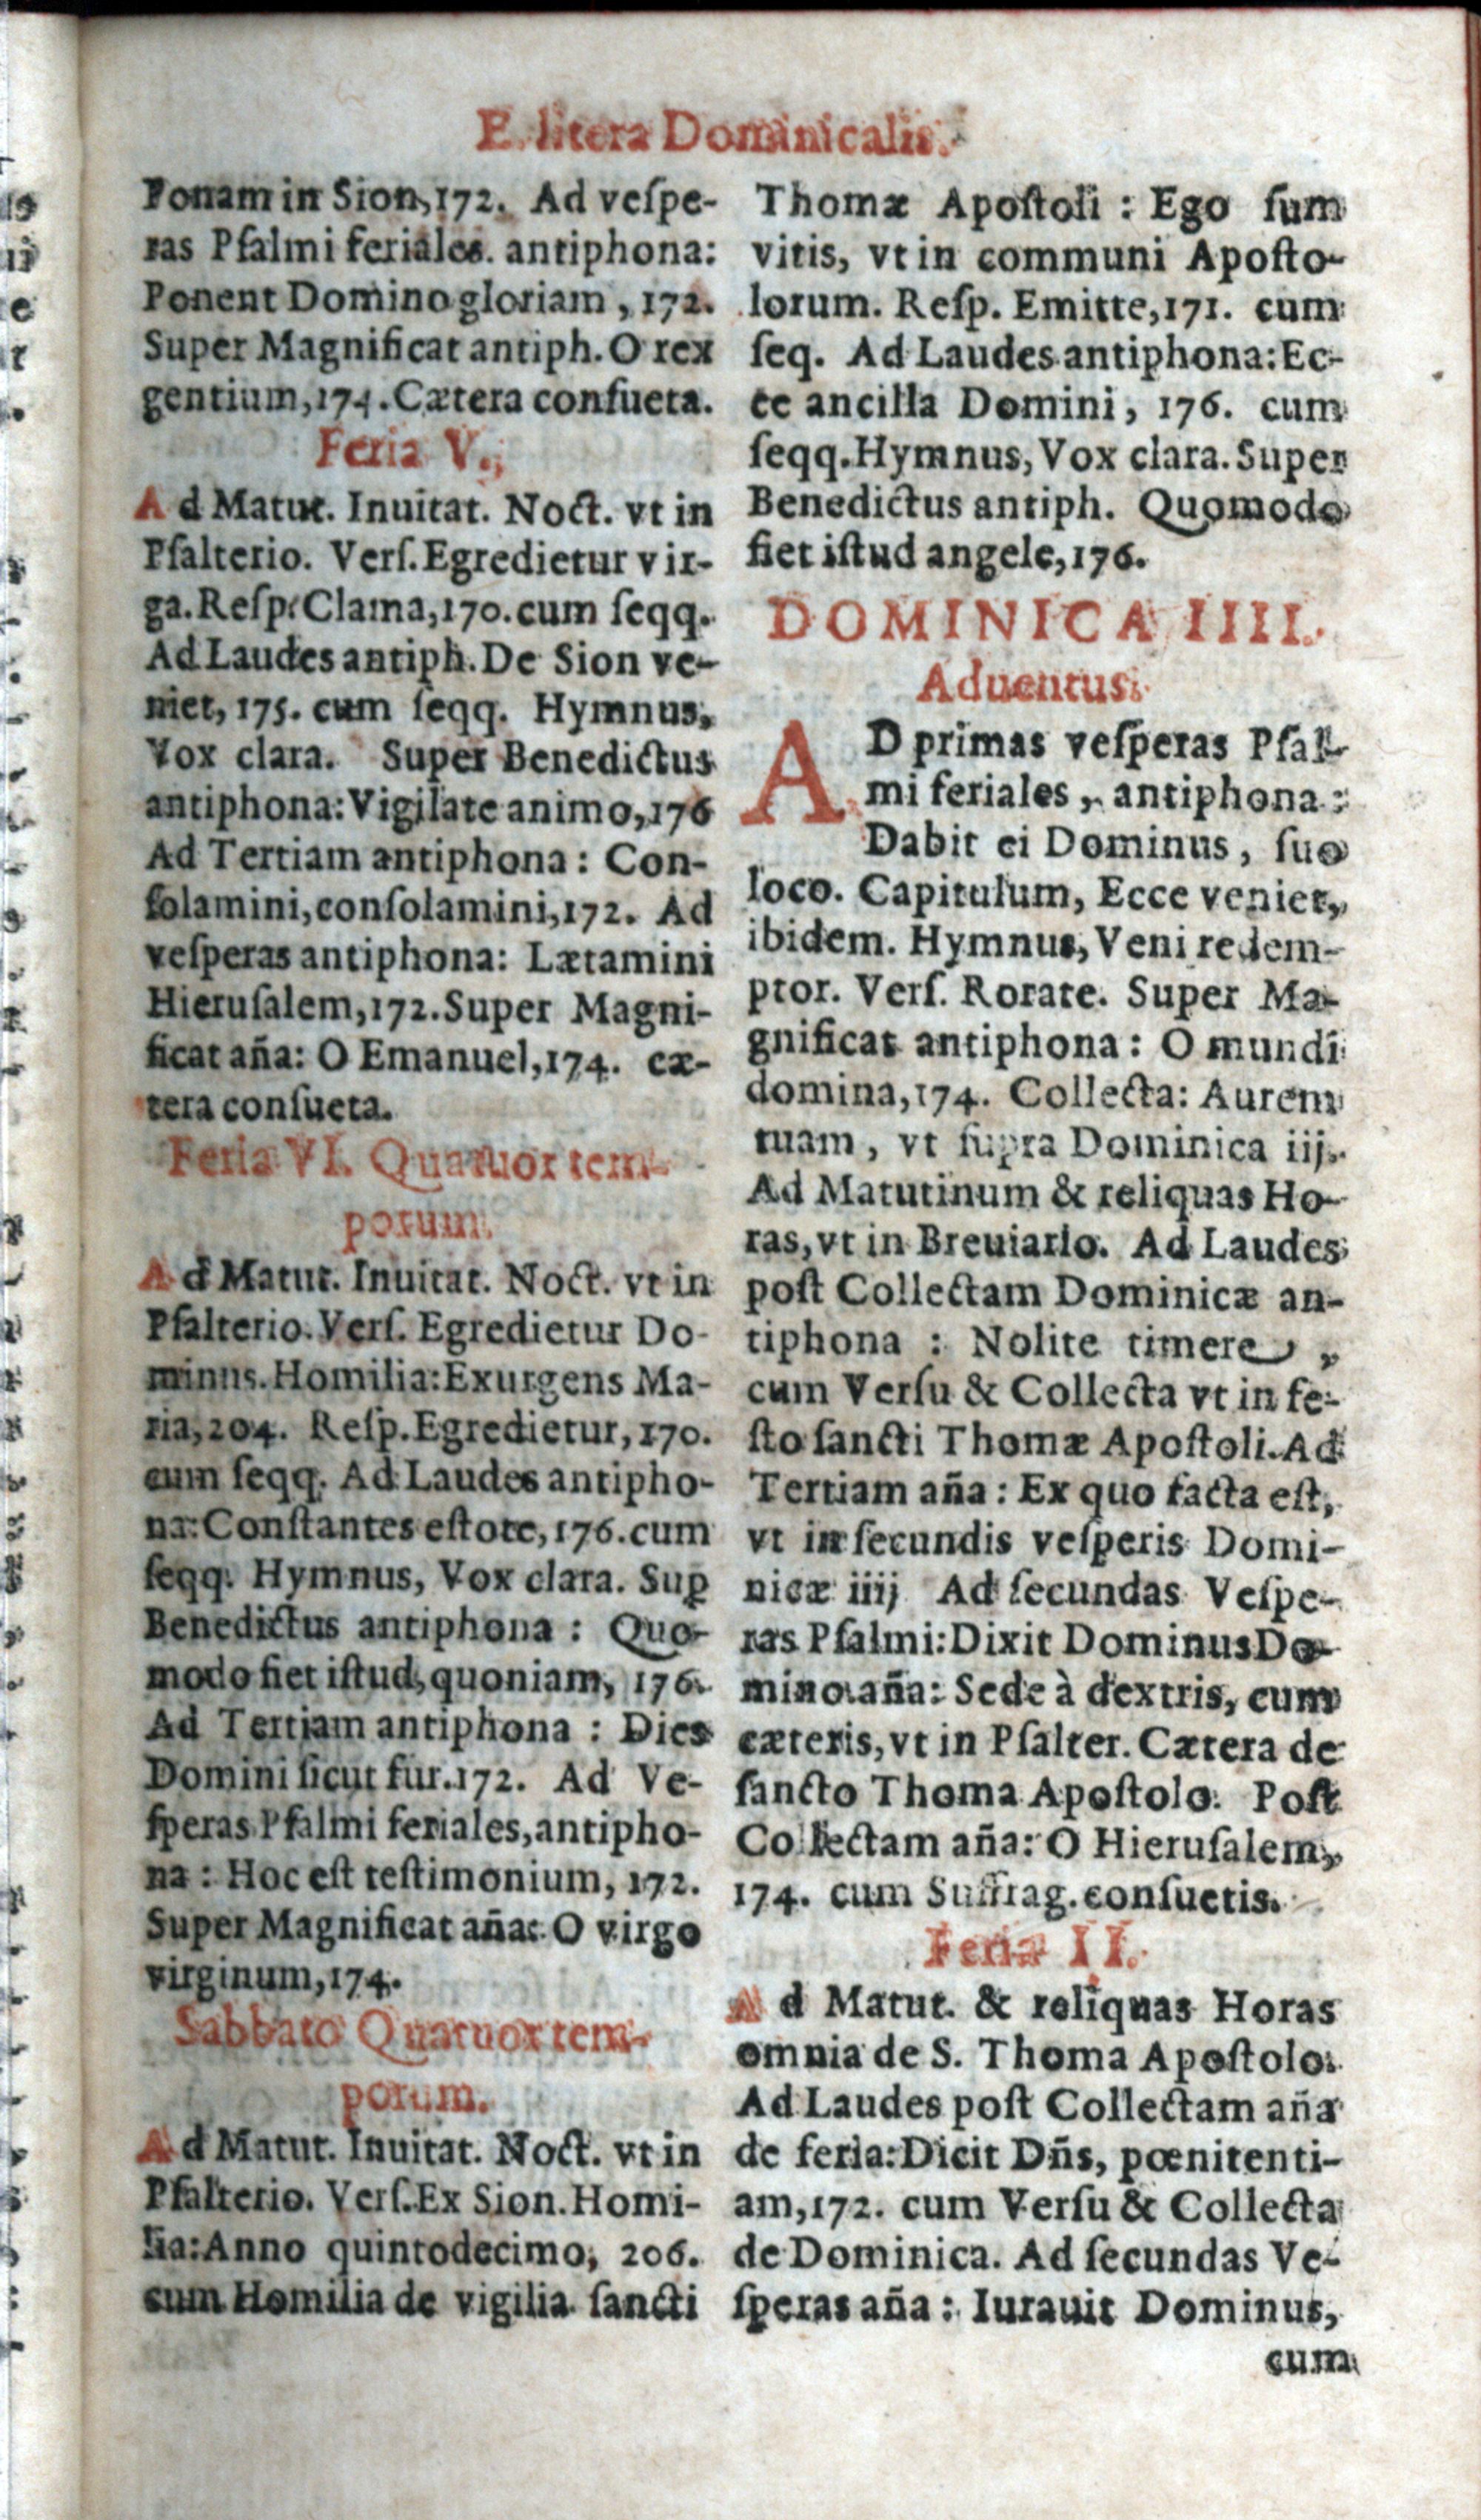 E. litera Dominicalis.
Ponam in Sion, 172. Ad veſpe-
ras Pſalmi feriales. antiphona:
Ponent Domino gloriam, 172.
Super Magnificat antiph. O rex
gentium, 174. Cætera conſueta.
Feria V.
Ad Matut. Inuitat. Noct. vt in
Pſalterio. Verſ. Egredietur vir-
ga. Reſp. Clama, 170. cum ſeqq.
Ad Laudes antiph. De Sion ve-
niet, 175. cum ſeqq. Hymnus,
Vox clara. Super Benedictus
antiphona: Vigilate animo, 176
Ad Tertiam antiphona: Con-
ſolamini, conſolamini, 172. Ad
veſperas antiphona: Lætamini
Hieruſalem, 172. Super Magni-
ficat aña: O Emanuel, 174. cæ-
tera conſueta.
Feria VI. Quatuor tem-
porum.
Ad Matut. Inuitat. Noct. vt in
Pſalterio. Verſ. Egredietur Do-
minus. Homilia: Exurgens Ma-
ria, 204. Reſp. Egredietur, 170.
cum ſeqq. Ad Laudes antipho-
na: Conſtantes eſtote, 176. cum
ſeqq. Hymnus, Vox clara. Sup̱
Benedictus antiphona: Quo-
modo fiet iſtud, quoniam, 176.
Ad Tertiam antiphona: Dies
Domini ſicut fur. 172. Ad Ve-
ſperas Pſalmi feriales, antipho-
na: Hoc eſt teſtimonium, 172.
Super Magnificat aña: O virgo
virginum, 174.
Sabbato Quatuor tem-
porum.
Ad Matut. Inuitat. Noct. vt in
Pſalterio. Verſ. Ex Sion. Homi-
lia: Anno quintodecimo, 206.
cum Homilia de vigilia ſancti
Thomæ Apoſtoli: Ego ſum
vitis, vt in communi Apoſto-
lorum. Reſp. Emitte, 171. cum
ſeq. Ad Laudes antiphona: Ec-
ce ancilla Domini, 176. cum
ſeqq. Hymnus, Vox clara. Super
Benedictus antiph. Quomodo
fiet iſtud angele, 176.
DOMINICA IIII.
Aduentus.
AD primas veſperas Pſal-
mi feriales, antiphona:
Dabit ei Dominus, ſuo
loco. Capitulum, Ecce veniet,
ibidem. Hymnus, Veni redem-
ptor. Verſ. Rorate. Super Ma-
gnificat antiphona: O mundi
domina, 174. Collecta: Aurem
tuam, vt ſupra Dominica iij.
Ad Matutinum & reliquas Ho-
ras, vt in Breuiario. Ad Laudes
poſt Collectam Dominicæ an-
tiphona: Nolite timere,
cum Verſu & Collecta vt in fe-
ſto ſancti Thomæ Apoſtoli. Ad
Tertiam aña: Ex quo facta eſt,
vt in ſecundis veſperis Domi-
nicæ iiij Ad ſecundas Veſpe-
ras Pſalmi: Dixit Dominus Do-
mino. aña: Sede à dextris, cum
cæteris, vt in Pſalter. Cætera de
ſancto Thoma Apoſtolo. Poſt
Collectam aña: O Hieruſalem,
174. cum Suffrag. conſuetis.
Feria II.
Ad Matut. & reliquas Horas
omnia de S. Thoma Apoſtolo.
Ad Laudes poſt Collectam aña
de feria: Dicit Dñs, pœnitenti-
am, 172. cum Verſu & Collecta
de Dominica. Ad ſecundas Ve-
ſperas aña: Iurauit Dominus,
cum